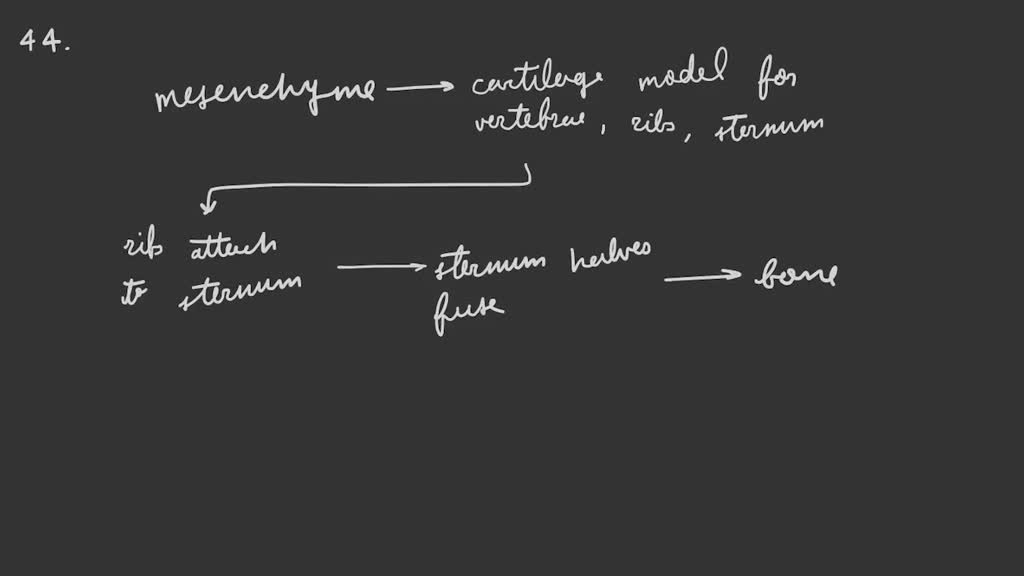 44.
mesenchyme → cartilage model for
vertebrae, ribs, sternum
ribs attach
to sternum → sternum halves
fuse → bone